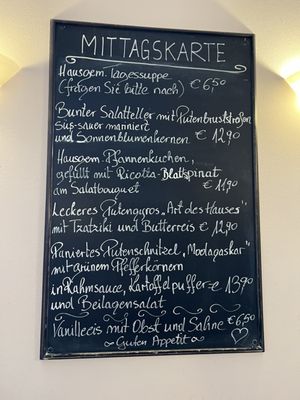 MITTAGSKARTE
Hausgem. Tagessuppe
(fragen Sie bitte nach) € 6,50
Bunter Salatteller mit Putenbruststreifen
süß-sauer mariniert
und Sonnenblumenkernen € 12,90
Hausgem. Pfannenkuchen,
gefüllt mit Ricotta-Blattspinat
am Salatbouquet € 11,90
Leckeres Putengyros „Art des Hauses"
mit Tzatziki und Butterreis € 12,90
Paniertes Putenschnitzel „Madagaskar"
mit grünem Pfefferkörnern
in Rahmsauce, Kartoffelpuffer € 13,90
und Beilagensalat
Vanilleeis mit Obst und Sahne € 6,50
Guten Appetit